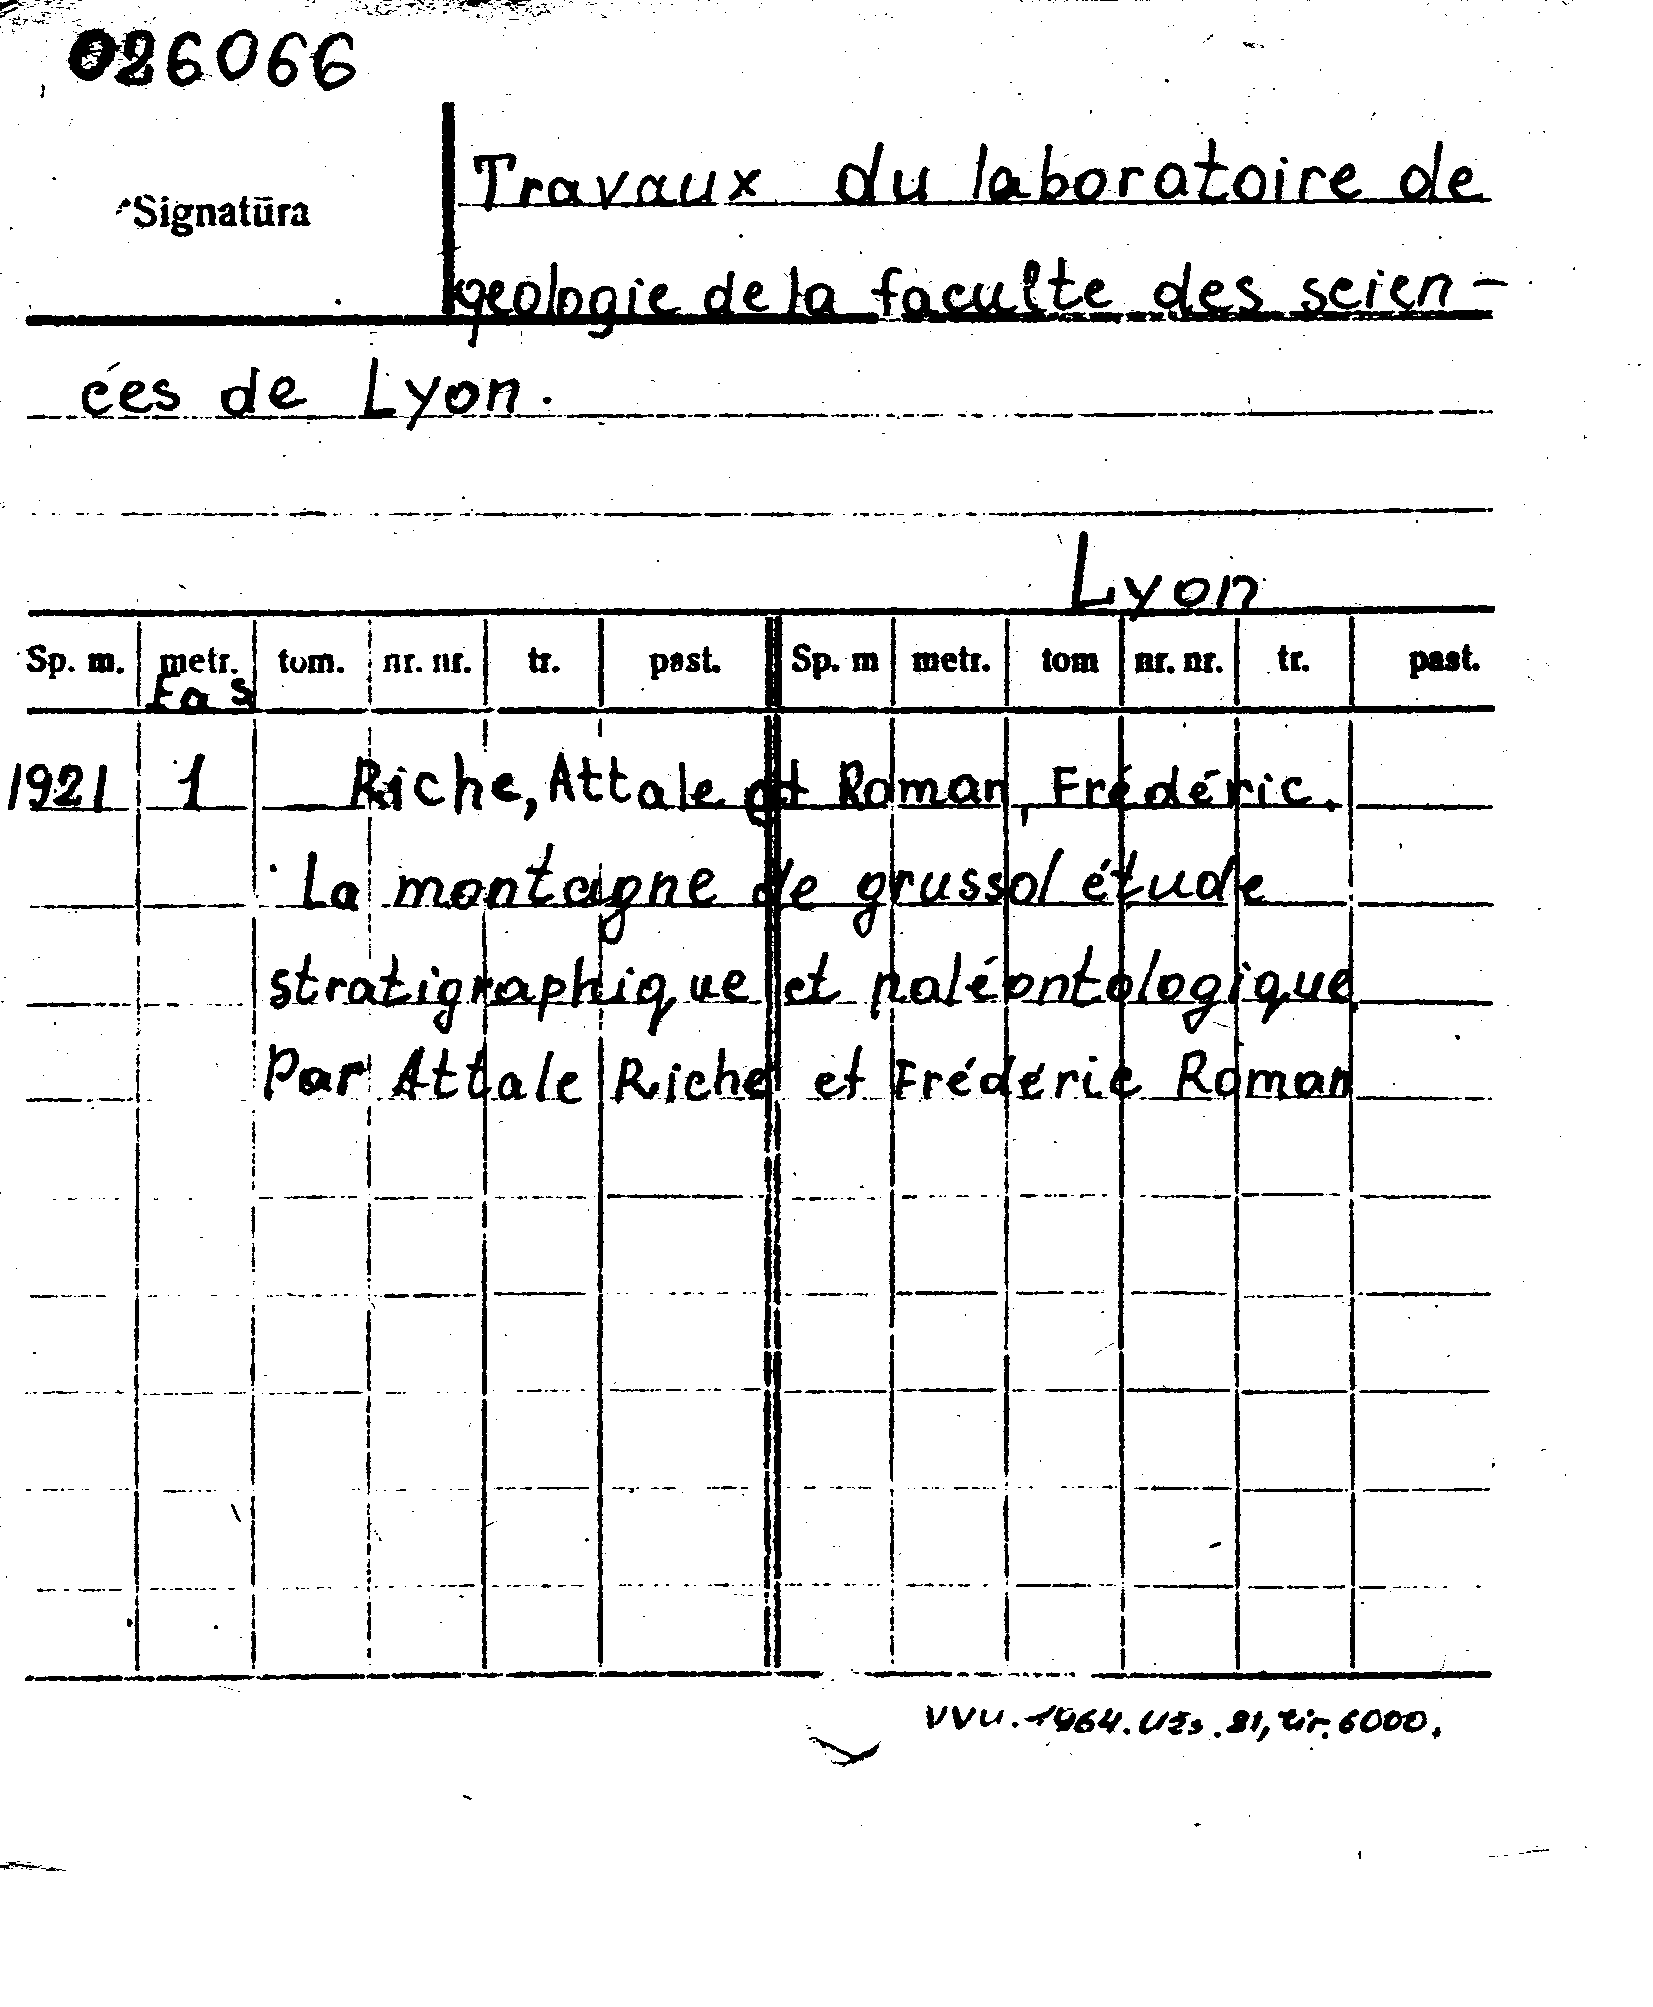 026066
Signatūra
Travaux du laboratoire de
geologie de la faculte des scien-
ces de Lyon.
Lyon
Sp. m. metr. tom. nr. nr. tr. past. Sp. m metr. tom nr. nr. tr. past.
Fas
1921 1 Riche, Attale et Roman, Frédéric.
La montagne de grussol étude
stratigraphique et paléontologique
Par Attale Riche et Frédéric Roman
VVU. 1964. Užs. 81, tir. 6000.